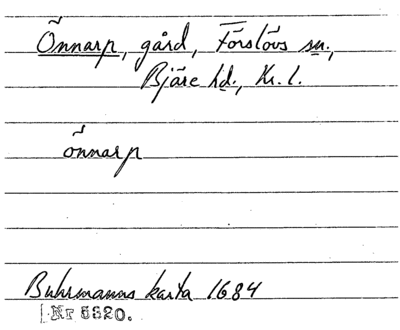 Önnarp, gård, Förslövs sn.,
Bjäre hd., Kr. l.
önnarp
Buhrmanns karta 1684
Nr 5520.